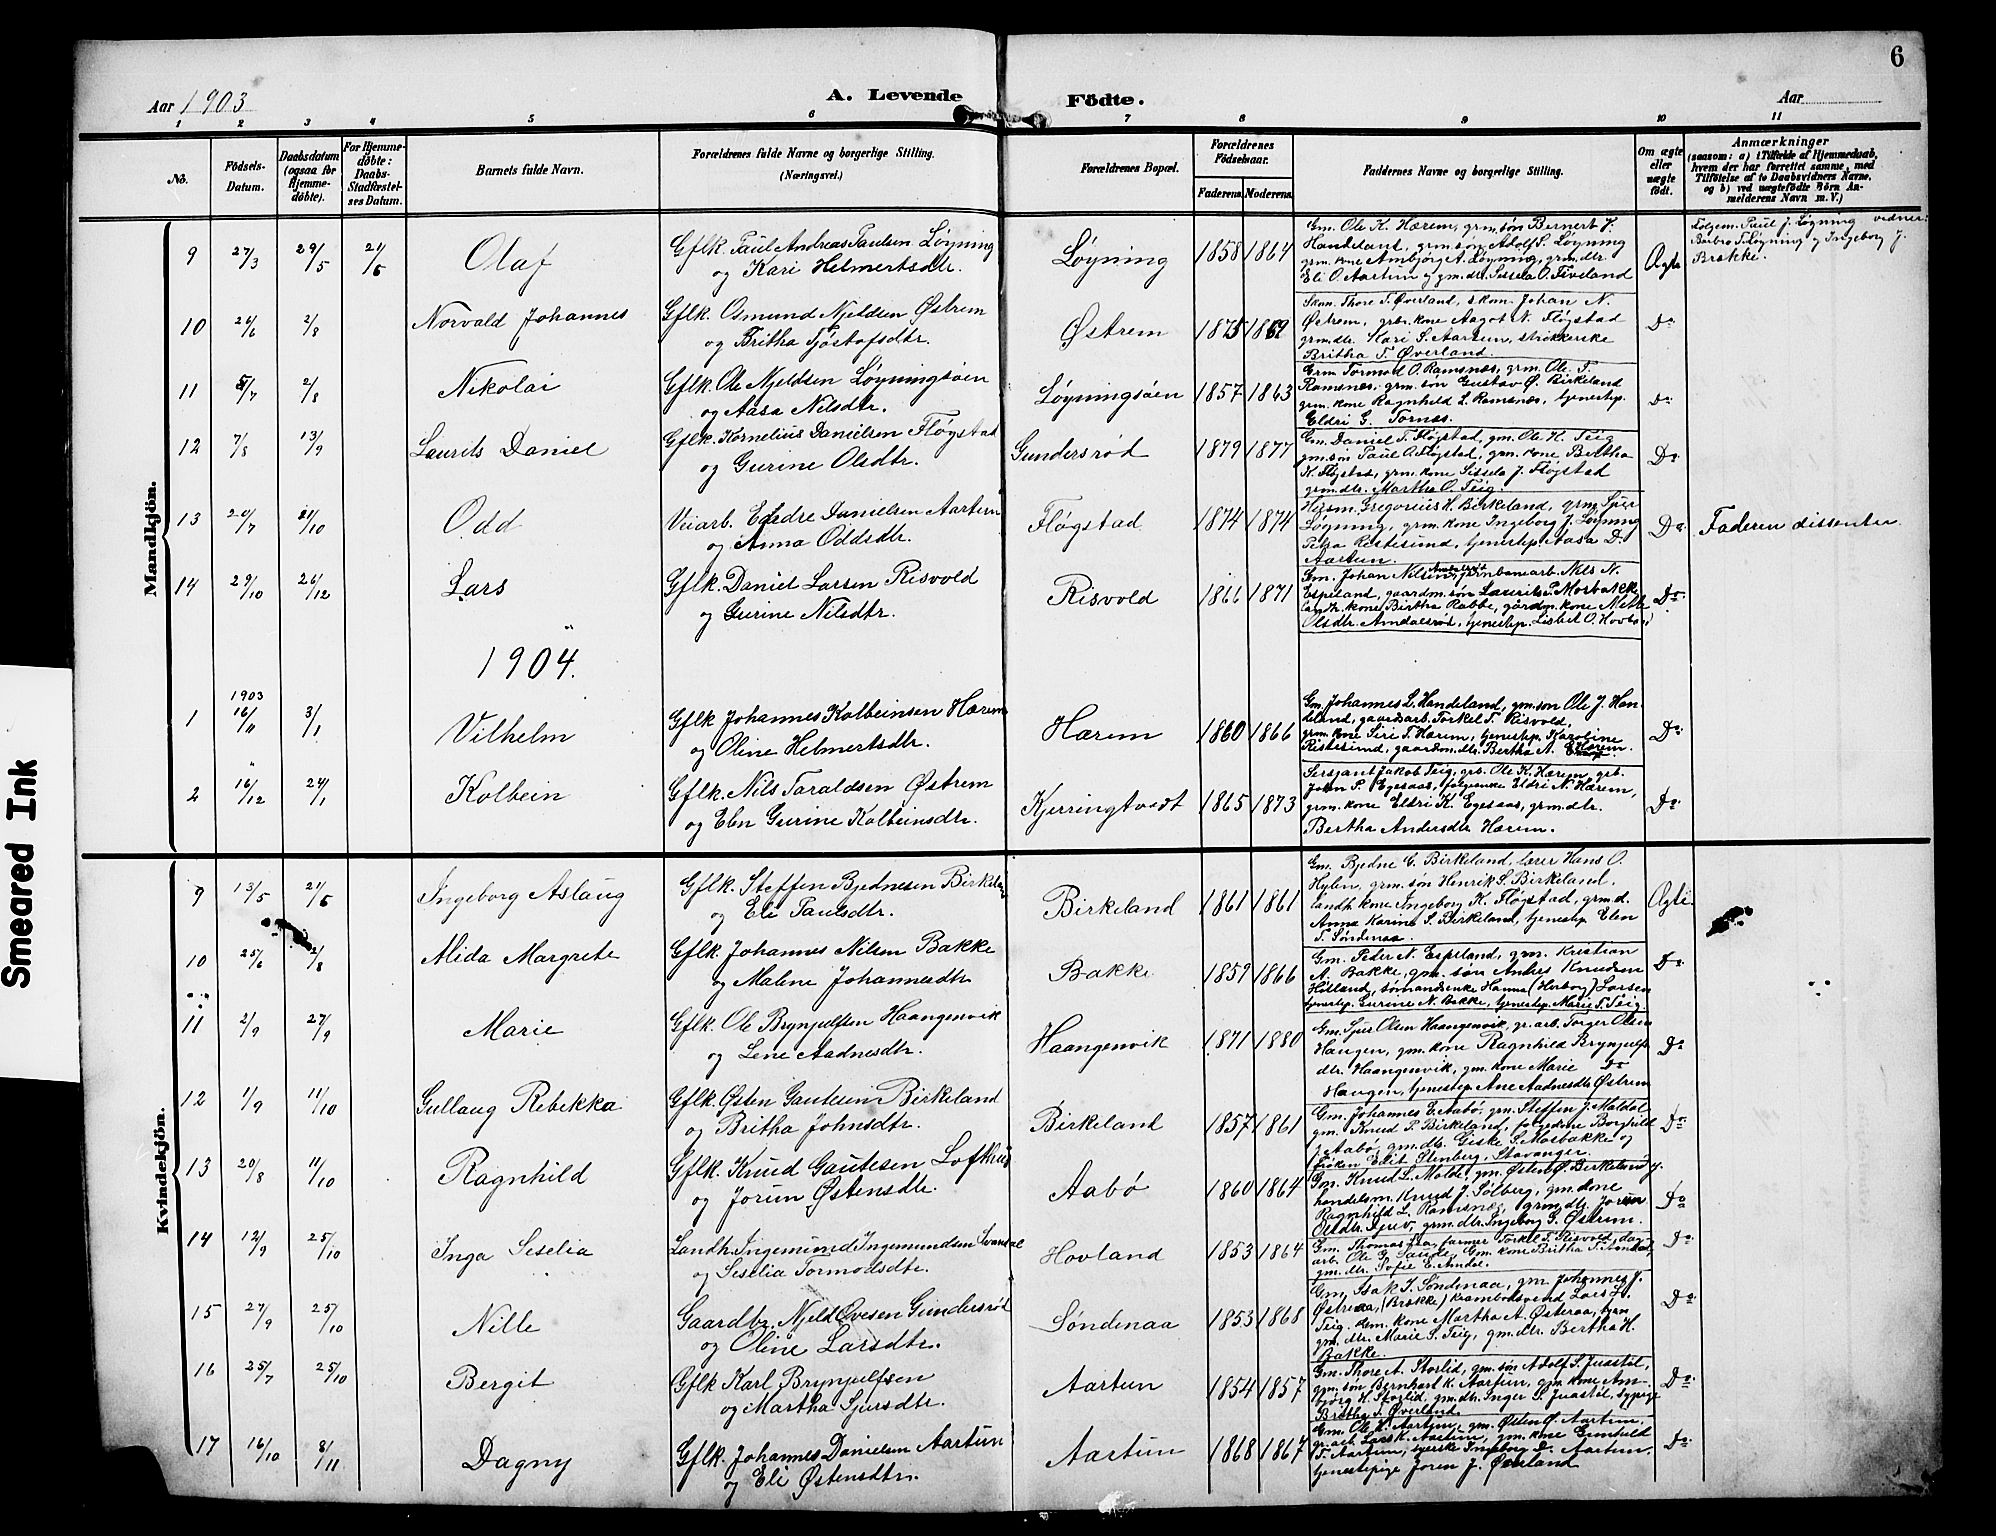 6
Aar 1903
A. Levende Födte.
Aar
1 2 3 4 5 6 7 8 9 10 11
No.
Födsels-Datum.
Daabsdatum (ogsaa for Hjemme-døbte).
For Hjemme-døbte: Daabs-Stadfæstel-ses Datum.
Barnets fulde Navn.
Forældrenes fulde Navne og borgerlige Stilling. (Næringsvei.)
Forældrenes Bopæl.
Forældrenes Födselsaar.
Faderens Moderens
Faddernes Navne og borgerlige Stilling.
Om ægte eller uægte født.
Anmærkninger
(saasom: a) i Tilfælde af Hjemmedaab, hvem der har forrettet samme, med Tilföielse af to Daabsvidners Navne, og b) ved uægtefödte Börn An-melderens Navn m. V.)
Mandkjön.
9 27/3 29/5 21/6 Olaf Gflk. Paul Andreas Paulsen Løyning
og Kari Helmertsdtr. Løyning 1858 1864
Gm. Ole K. Hærem, grm. søn Bernert J.
Handeland, grm. søn Adolf S. Løyning
grm. kone Ambjørg A. Løyning, grm. dtr.
Eli O. Aartun og gm. dtr. Sissela O. Tiveland
Ægte
Paul J. Løyning vidner:
Barbro T. Løyning og Ingeborg J.
Brække.
10 26/6 2/8 Norvald Johannes Gflk. Osmund Njeldsen Østrem
og Britha Tjøstofsdtr. Østrem 1875
Skom. Thore T. Øverland, skom. Johan N.
Østrem, grbr. kone Aagot N. Fløgstad
grm. dtr. Kari S. Aartun, strikkerske
Britha T. Øverland.
Do
11 5/7 2/8 Nikolai Gflk. Ole Njeldsen Løyningsøen
og Aasa Nilsdtr. Løyningsøen 1857 1863
Grm. Tormod O. Ramsnæs, grm. Ole T.
Ramsnæs, grm. søn Gustav Ø. Birkeland
grm. kone Ragnhild L. Ramsnæs, tjenestep.
Eldri G. Tornæs.
Do
12 7/8 13/9 Laurits Daniel Gflk. Kornelius Danielsen Fløgstad
og Gurine Olsdtr. Gundersrød 1879 1877
Gm. Daniel T. Fløgstad, gm. Ole H. Teig
gm. søn Paul O. Fløgstad, grm. kone Bertha
K. Fløgstad, grm. kone Sissela J. Fløgstad
grm. dtr. Martha O. Teig.
Do
13 20/7 21/10 Odd Veiarb. Endre Danielsen Aartun
og Anna Oddsdtr. Fløgstad 1874 1874
Husm. Gregorius H. Birkeland, grm. Sjur
Løyning, grm. kone Ingeborg J. Løyning
Petra Ristesund, tjenestep. Aasa D.
Aartun.
Do Faderen dissenter
14 29/10 26/12 Lars Gflk. Daniel Larsen Risvold
og Gurine Nilsdtr. Risvold 1866 1871
Gm. Johan Nilsen Amdalsrød, jernbanearb. Nils N.
Espeland, gaardm. søn Laurits P. Mosbække
landh. kone Birtha Rabbe, gårdm. kone Mette
Olsdtr. Amdalsrød, tjenestep. Lisbet O.
Do
1904.
1 1903 16/11 3/1 Vilhelm Gflk Johannes Kolbeinsen Hærem
og Oline Helmertsdtr. Hærem 1860 1866
Gm. Johannes L. Handeland, gm. søn Ole J. Han-
deland, gaardsarb. Torkel T. Risvold,
grm. kone Siri S. Hærem, tjenestep. Karoline
Ristesund, gaardm. dtr. Bertha A. Hærem.
Do
2 16/12 24/1 Kolbein Gflk. Nils Taraldsen Østrem
og Elen Gurine Kolbeinsdtr. Kjerringtvedt 1865 1873
Sersjant Jakob Teig, grb. Ole K. Hærem, grb.
John P. Egesaas, Eldri N. Hærem,
grm. kone Eldri K. Egesaas, grm. dtr.
Bertha Andersdtr Hærem.
Do
Kvindekjön.
9 13/5 21/6 Ingeborg Aslaug Gflk. Steffen Bjednesen Birkeland
og Eli Paulsdtr. Birkeland 1861 1861
Gm. Bjedne C. Birkeland, lærer Hans O.
Hylen, grm. søn Henrik S. Birkeland.
landh. kone Ingeborg K. Fløgstad, grm. d.
Anna Karine S. Birkeland, tjenestep. Elen
T. Søndenaa.
Ægte
10 25/6 2/8 Alida Margrete Gflk. Johannes Nilsen Bakke
og Malene Johannesdtr Bakke 1859 1866
Gm. Peder N. Espeland, gm. Kristian
N. Bakke, gm. søn Anders Knudsen
Høiland, sømandsenke Hanna (Herborg) Larsen
tjenestep. Gurine N. Bakke, tjenestep. Marie T. Teig.
Do
11 2/9 27/9 Marie Gflk. Ole Brynjulfsen Haangenvik
og Lene Aadnesdtr. Haangenvik 1871 1880
Gm. Sjur Olsen Haangenvik, gr. arb. Torger Olsen
Haugen, gm. kone Ragnhild Brynjulfs-
dtr. Haangenvik, gm. kone Marie Do
Haugen, tjenestep. Ane Aadnesdtr Østrem
Do
12 1/9 11/10 Gullaug Rebekka Gflk. Østen Gautesen Birkeland
og Britha Johnsdtr. Birkeland 1857 1861
Gm. Johannes E. Aabø, gm. Steffen J. Maldal
gm. Knud P. Birkeland, Borghild
J. Aabø, gm. dtr. Giske S. Mosbakke og
Frøken Elit Stenberg, Stavanger.
Do
13 20/8 11/10 Ragnhild Gflk. Knud Gautesen Lofthus
og Jorun Østensdtr. Aabø 1860 1864
Gm. Knud L. Molde, gm. Østen Ø. Birkeland,
handelsm. Knud J. Solberg, gm. kone
Ragnhild L. Ramsnæs, grm. dtr. Jorun
Olsdtr. Sjuev, grm. dtr. Ingeborg G. Østrem.
Do
14 12/9 25/10 Inga Seselia Landh. Ingemund Ingemundsen Svandal
og Seselia Tormodsdtr. Hovland 1853 1864
Gm. Thomas farmer Torkel T. Risvold, dag-
arb. Ole G. Saude, Gm. kone Britha T. Svandal,
gm. dtr. Sofie E. Amdal.
Do
15 27/9 25/10 Nille Gaardbr. Njeld Ovesen Gundersrød
og Oline Larsdtr. Søndenaa 1853 1868
Gm. Isak I. Søndenaa, gm. Johannes J.
Østraa, (Brække) krambodsvend Lars L.
Teig, kone Martha A. Østeraa,
gm. dtr. Marie S. Teig, gm. dtr. Bertha H.
Bakke.
Do
16 25/7 25/10 Bergit Gflk Karl Brynjulfsen
og Martha Sjursdtr. Aartun 1854 1857
Gm. Thore A. Storlid, gm. søn Adolf S. Juastøl,
gm. søn Bernhart K. Aartun, gm. kone Am-
bjørg K. Storlid, gm. dtr. Inger S. Juastøl, sypige
Britha T. Øverland.
Do
17 16/10 8/11 Dagny Gflk. Johannes Danielsen Aartun
og Eli Østensdtr. Aartun 1868 1867
Gm. Ole K. Aartun, gm. Østen Ø. Aartun,
gr. arb. Lars K. Aartun, gm. kone Gunhild
T. Aartun, syerske Ingeborg D. Aartun,
tjenestepige Joren J. Øverland
Do
Smeared Ink